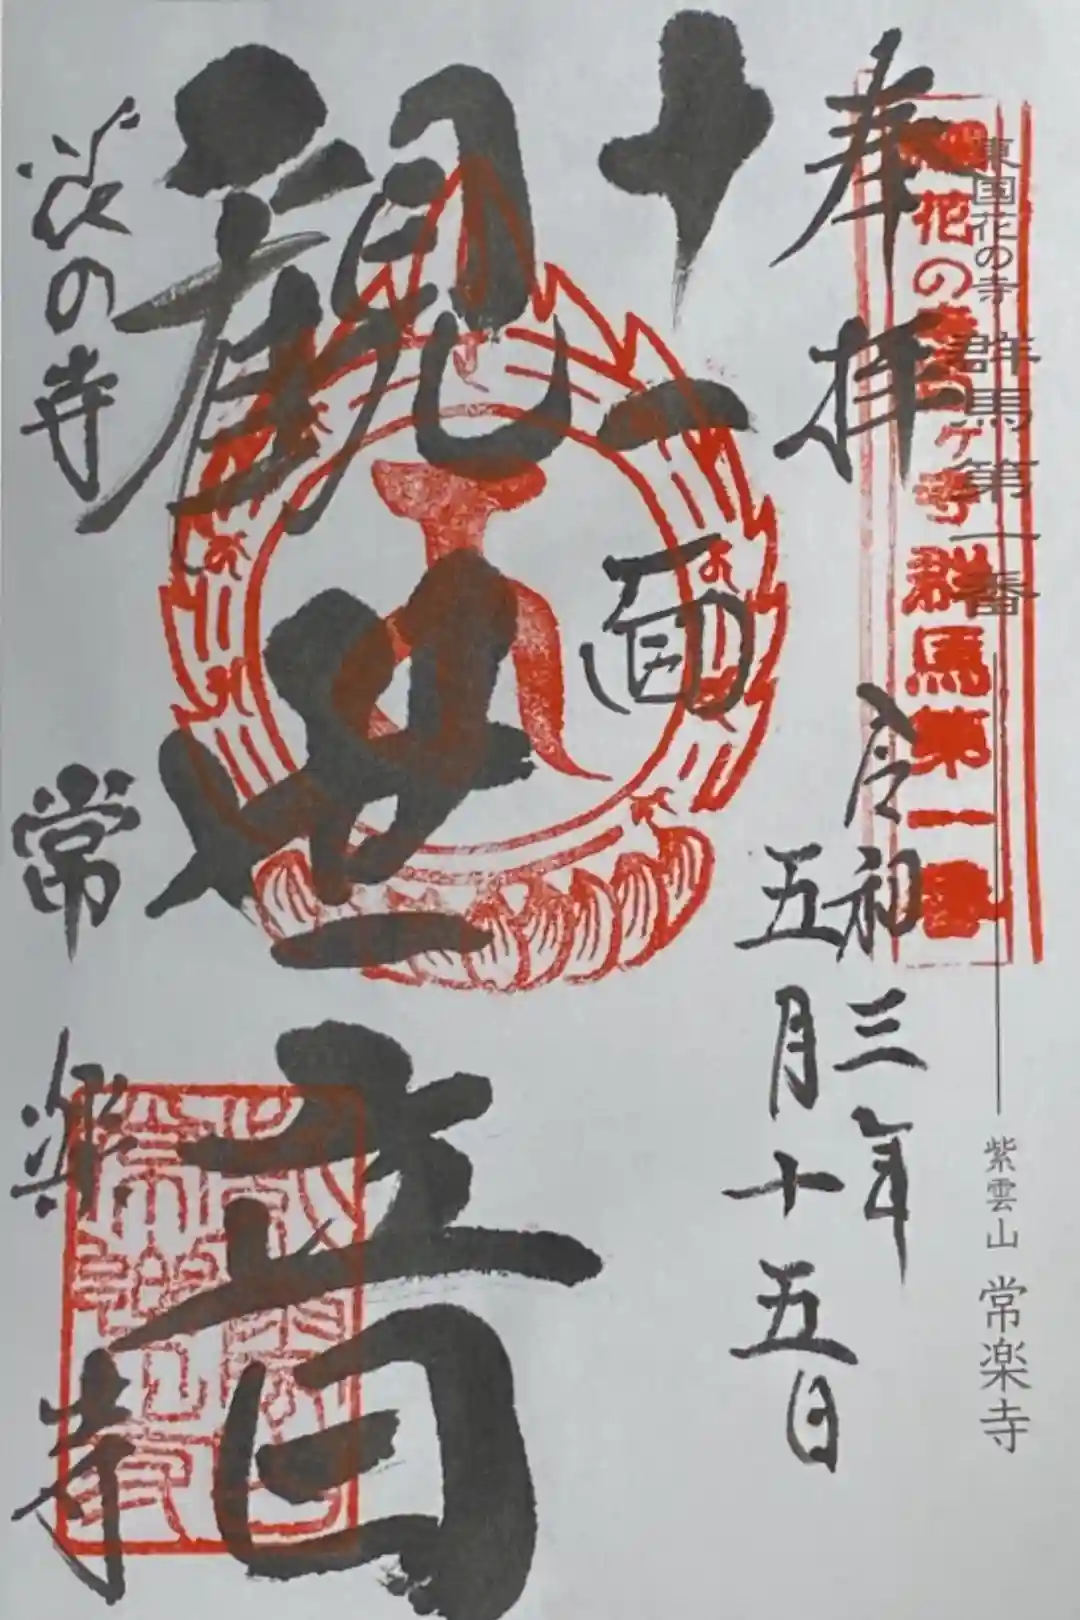 東国花の寺 群馬第一番
紫雲山 常楽寺
東国花の寺百ヶ寺群馬第一番
奉拝
令和三年
五月十五日
十一面
観世音
花の寺 常楽寺